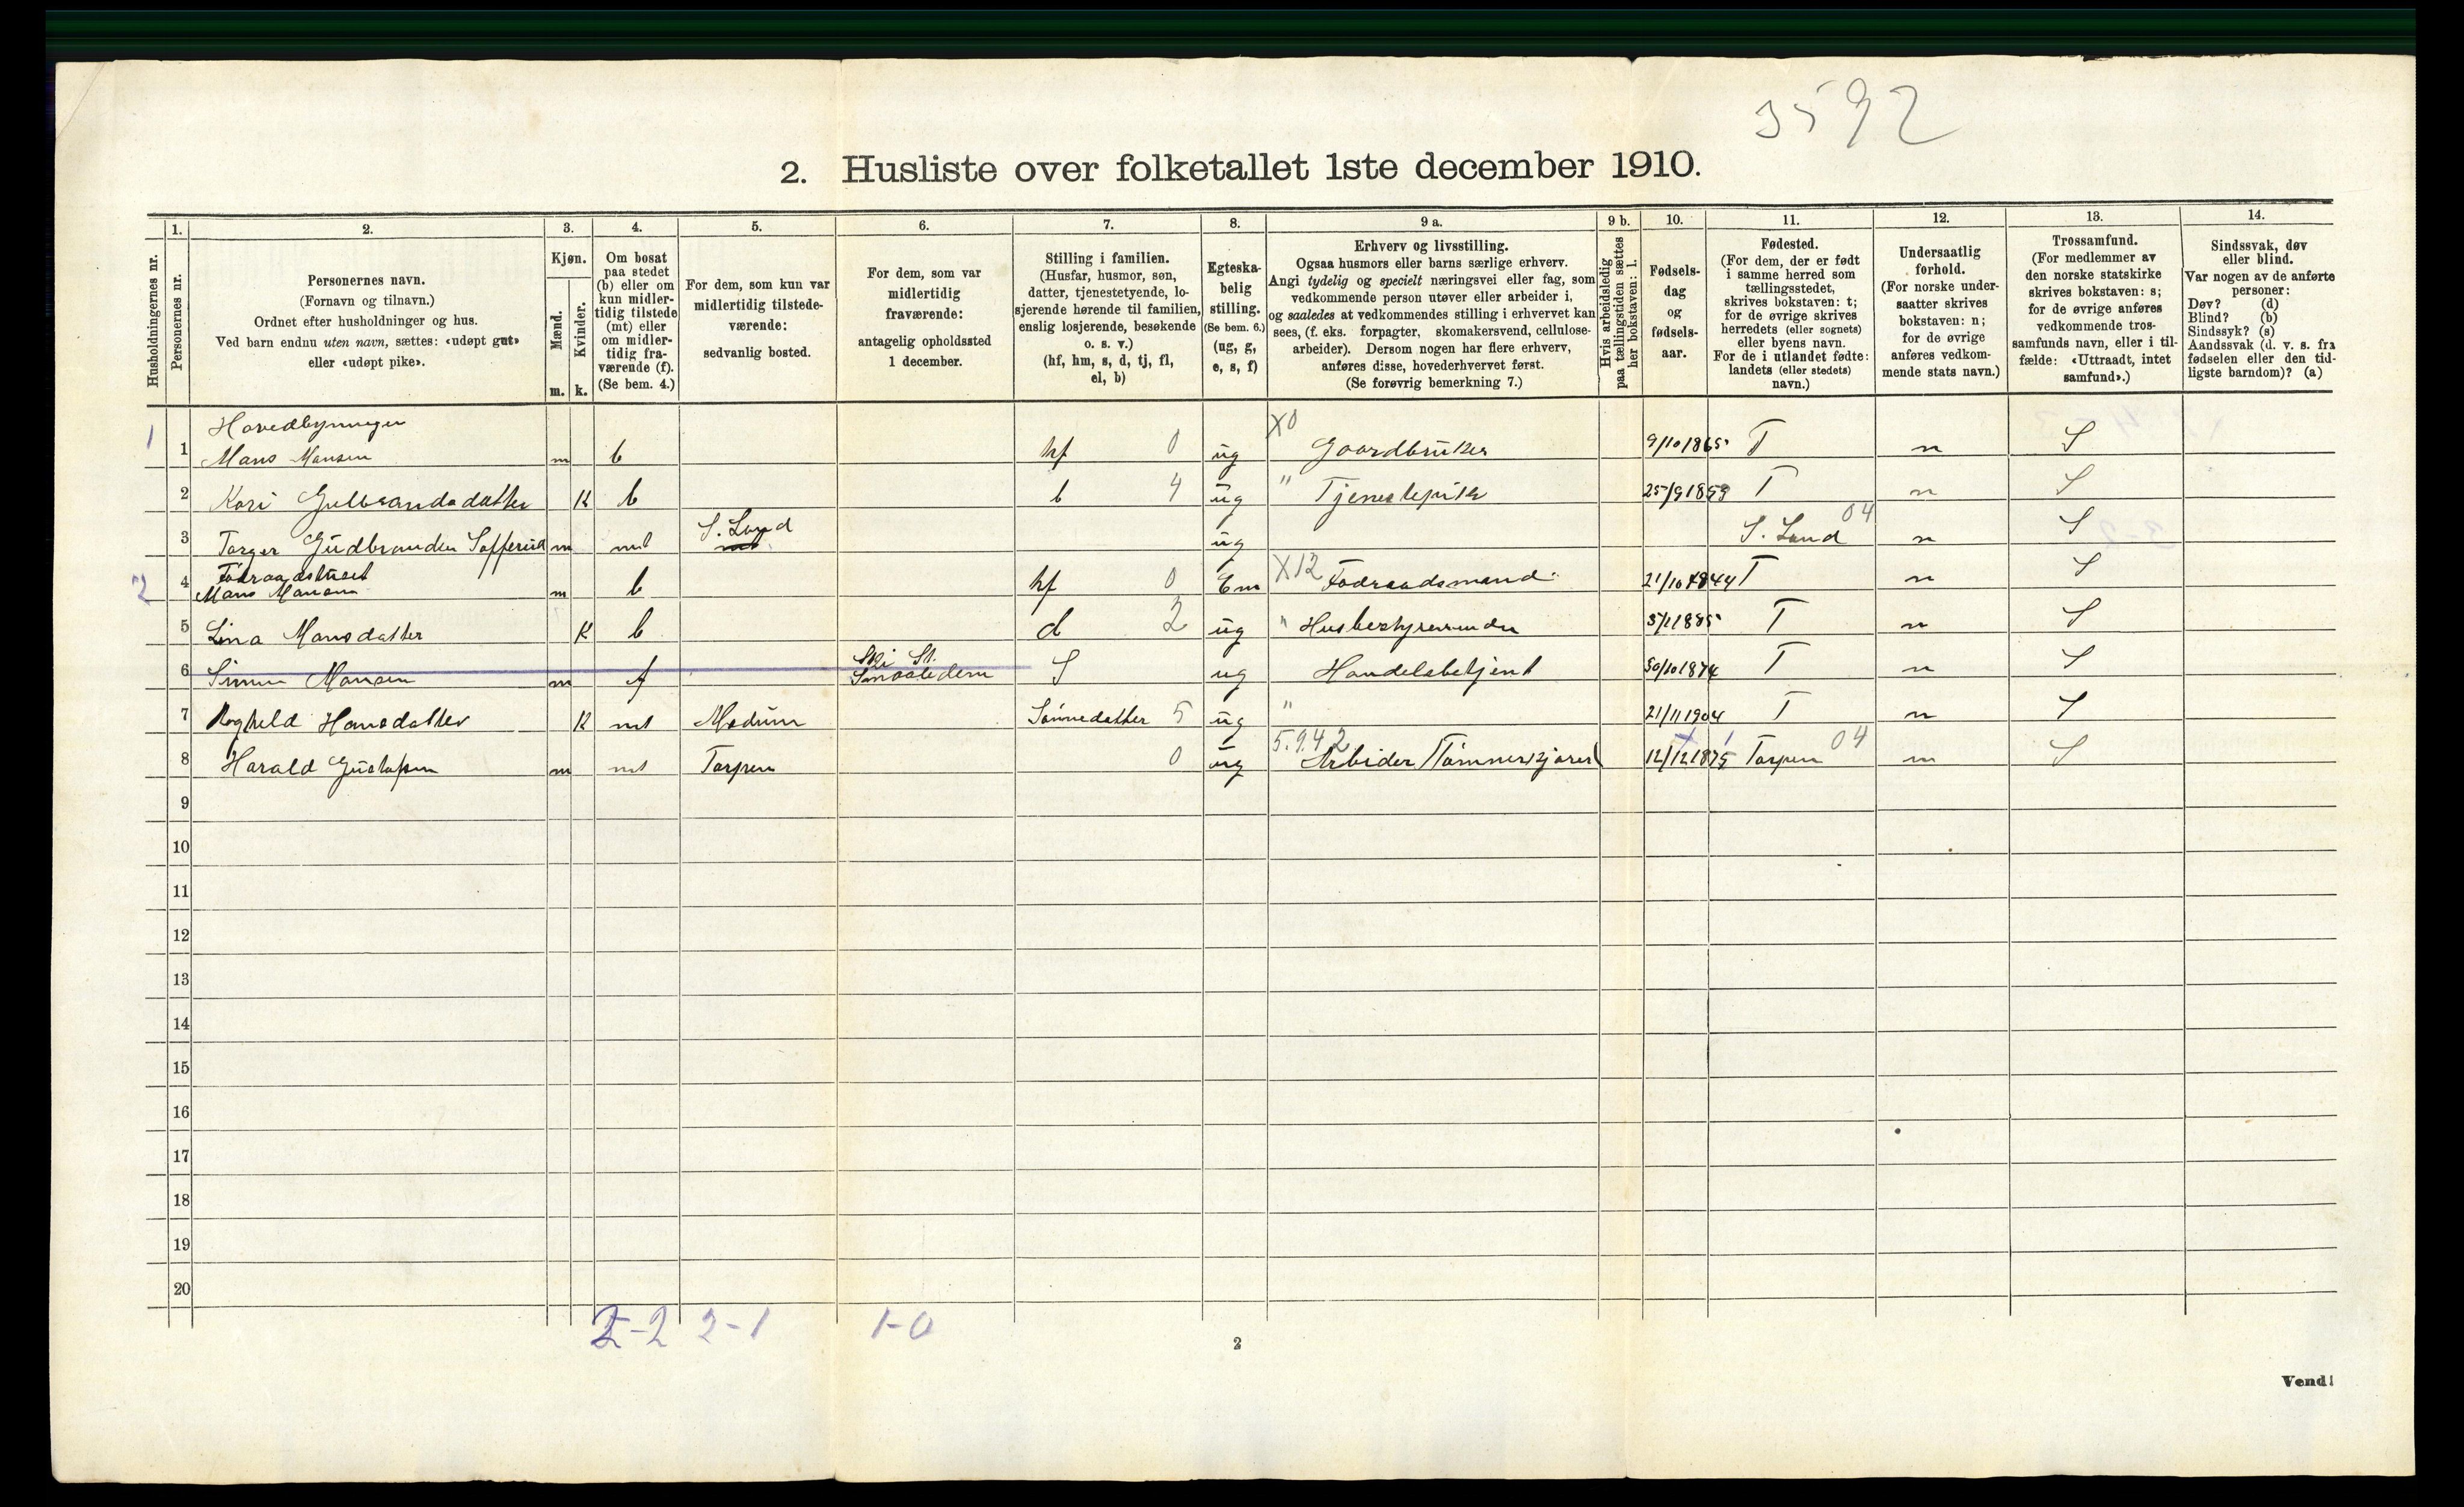 3592
2. Husliste over folketallet 1ste december 1910.
Husholdningernes nr.
1.
Personernes nr.
2.
Personernes navn.
(Fornavn og tilnavn.)
Ordnet efter husholdninger og hus.
Ved barn endnu uten navn, sættes: «udøpt gut»
eller «udøpt pike».
3.
Kjøn.
Mænd.
Kvinder.
m. k.
4.
Om bosat
paa stedet
(b) eller om
kun midler-
tidig tilstede
(mt) eller
om midler-
tidig fra-
værende (f).
(Se bem. 4.)
5.
For dem, som kun var
midlertidig tilstede-
værende:
sedvanlig bosted.
6.
For dem, som var
midlertidig
fraværende:
antagelig opholdssted
1 december.
7.
Stilling i familien.
(Husfar, husmor, søn,
datter, tjenestetyende, lo-
sjerende hørende til familien,
enslig losjerende, besøkende
o. s. v.)
(hf, hm, s, d, tj, fl,
el, b)
8.
Egteska-
belig
stilling.
(Se bem. 6.)
(ug, g,
e, s, f)
9 a.
Erhverv og livsstilling.
Ogsaa husmors eller barns særlige erhverv.
Angi tydelig og specielt næringsvei eller fag, som
vedkommende person utøver eller arbeider i,
og saaledes at vedkommendes stilling i erhvervet kan
sees, (f. eks. forpagter, skomakersvend, cellulose-
arbeider). Dersom nogen har flere erhverv,
anføres disse, hovederhvervet først.
(Se forøvrig bemerkning 7.)
9 b.
Hvis arbeidsledig
paa tællingstiden sættes
her bokstaven: l.
10.
Fødsels-
dag
og
fødsels-
aar.
11.
Fødested.
(For dem, der er født
i samme herred som
tællingsstedet,
skrives bokstaven: t;
for de øvrige skrives
herredets (eller sognets)
eller byens navn.
For de i utlandet fødte:
landets (eller stedets)
navn.)
12.
Undersaatlig
forhold.
(For norske under-
saatter skrives
bokstaven: n;
for de øvrige
anføres vedkom-
mende stats navn.)
13.
Trossamfund.
(For medlemmer av
den norske statskirke
skrives bokstaven: s;
for de øvrige anføres
vedkommende tros-
samfunds navn, eller i til-
fælde: «Uttraadt, intet
samfund».)
14.
Sindssvak, døv
eller blind.
Var nogen av de anførte
personer:
Døv? (d)
Blind? (b)
Sindssyk? (s)
Aandssvak (d. v. s. fra
fødselen eller den tid-
ligste barndom)? (a)
Hovedbyningen
1 1 Hans Hansen m b hf 0 ug X0 Gaardbruker 9/10 1865 T n S
2 Kari Gulbrandsdatter K b b 4 ug " Tjenestepike 25/9 1853 T n S
3 Torger Gudbrandsen m mt S. Land ug S. Land 04 n S
Føderaadstuet
2 4 Hans Hansen m b hf 0 Em X12 Fødraadsmand 21/10 1844 T n S
5 Lina Hansdatter K b d 2 ug " Husbestyrerinde 3/1 1885 T n S
6 Simen Hansen m f Ski St. Smaaledene S ug Handelsbetjent 30/10 1874 T n S
7 Ragheld Hansdatter K mt Modum Sønnedatter 5 ug " 21/11 1904 T n S
8 Harald Gustafsen m mt Torpen 0 ug 5.9.42 Arbider Tømmerkjører 12/12 1875 Torpen 04 n S
9
10
11
12
13
14
15
16
17
18
19
20
2-2 2-1 1-0
2
Vend!